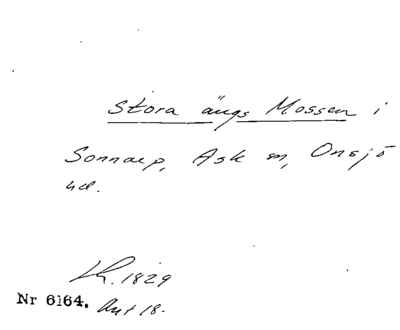 Stora ängs Mossen i
Sonnarp, Ask sn, Onsjö
hd.
Lh. 1829
Nr 6164. Ant 18.